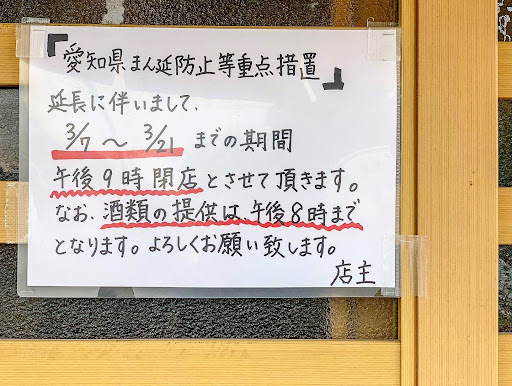 『愛知県まん延防止等重点措置』
延長に伴いまして、
3/7 〜 3/21 までの期間
午後9時閉店とさせて頂きます。
なお、酒類の提供は、午後8時まで
となります。よろしくお願い致します。
店主